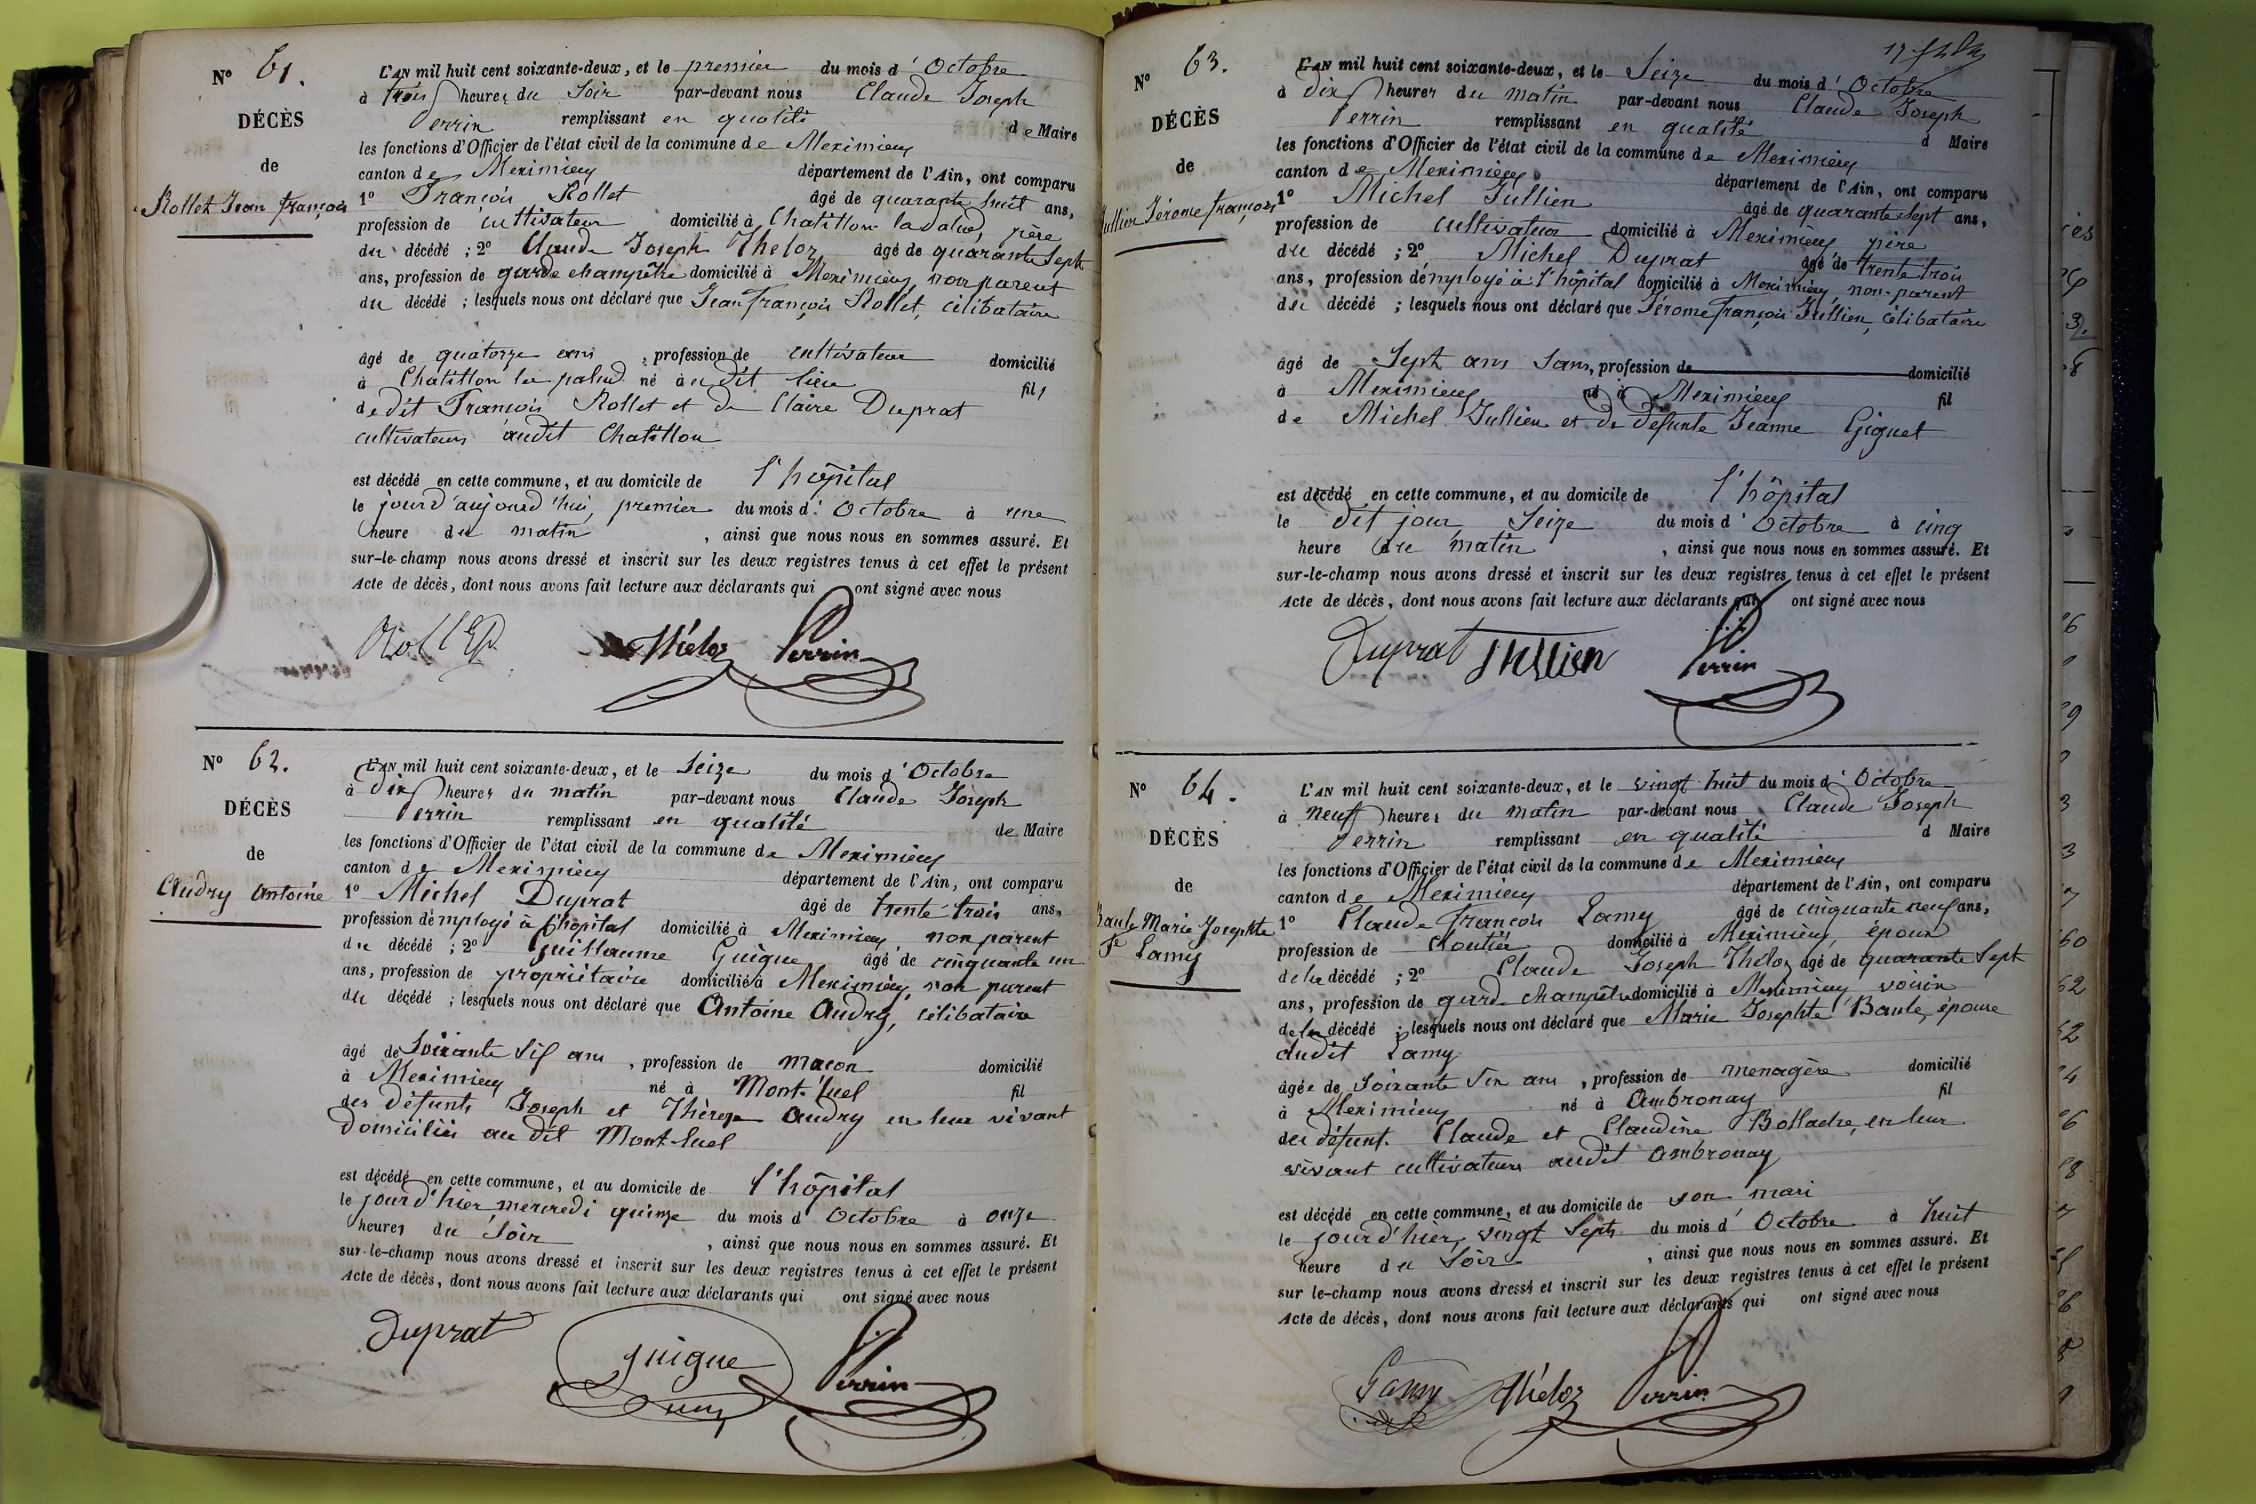 N° 61.
DÉCÈS
de
Rollet Jean François
L'AN mil huit cent soixante-deux, et le premier du mois d'Octobre
à trois heures du Soir par-devant nous Claude Joseph
Perrin remplissant en qualité de Maire
les fonctions d'Officier de l'état civil de la commune de Meximieux
canton de Meximieux département de l'Ain, ont comparu
1° François Rollet âgé de quarante huit ans,
profession de cultivateur domicilié à Chatillon la palud, père
du décédé ; 2° Claude Joseph Theloz âgé de quarante Sept
ans, profession de garde champêtre domicilié à Meximieux, non parent
du décédé ; lesquels nous ont déclaré que Jean François Rollet, célibataire
âgé de quatorze ans, profession de cultivateur domicilié
à Chatillon la palud né au dit lieu fils
de dit François Rollet et de Claire Duprat
cultivateurs audit Chatillon
est décédé en cette commune, et au domicile de l'hôpital
le jourd'aujourd'hui, premier du mois d'Octobre à une
heure du matin, ainsi que nous nous en sommes assuré. Et
sur-le-champ nous avons dressé et inscrit sur les deux registres tenus à cet effet le présent
Acte de décès, dont nous avons fait lecture aux déclarants qui ont signé avec nous
Rollet Théloz Perrin
N° 62.
DÉCÈS
de
Audry Antoine
L'AN mil huit cent soixante-deux, et le Seize du mois d'Octobre
à Dix heures du matin par-devant nous Claude Joseph
Perrin remplissant en qualité de Maire
les fonctions d'Officier de l'état civil de la commune de Meximieux
canton de Meximieux département de l'Ain, ont comparu
1° Michel Duprat âgé de trente trois ans,
profession d'employé à l'hôpital domicilié à Meximieux, non parent
du décédé ; 2° Guillaume Guigue âgé de cinquante un
ans, profession de propriétaire domicilié à Meximieux, non parent
du décédé ; lesquels nous ont déclaré que Antoine Audry, célibataire
âgé de Soixante Six ans, profession de maçon domicilié
à Meximieux né à Mont-luel fil
des défunts Joseph et Thérèze Audry en leur vivant
domiciliés au dit Mont-luel
est décédé en cette commune, et au domicile de l'hôpital
le jourd'hier, mercredi quinze du mois d'Octobre à onze
heures du Soir, ainsi que nous nous en sommes assuré. Et
sur-le-champ nous avons dressé et inscrit sur les deux registres tenus à cet effet le présent
Acte de décès, dont nous avons fait lecture aux déclarants qui ont signé avec nous
Duprat guigue Perrin
N° 63.
DÉCÈS
de
Jullien Jérome François
L'AN mil huit cent soixante-deux, et le Seize du mois d'Octobre
à dix heures du matin par-devant nous Claude Joseph
Perrin remplissant en qualité d Maire
les fonctions d'Officier de l'état civil de la commune de Meximieux
canton de Meximieux département de l'Ain, ont comparu
1° Michel Jullien âgé de quarante Sept ans,
profession de cultivateur domicilié à Meximieux père
du décédé ; 2° Michel Duprat âgé de trente trois
ans, profession d'employé à l'hôpital domicilié à Meximieux, non-parent
du décédé ; lesquels nous ont déclaré que Jérome François Jullien, célibataire
âgé de Sept ans Sans, profession de domicilié
à Meximieux né à Meximieux fil
de Michel Jullien et de défunte Jeanne Giguet
est décédé en cette commune, et au domicile de l'hôpital
le dit jour Seize du mois d'Octobre à cinq
heure du matin, ainsi que nous nous en sommes assuré. Et
sur-le-champ nous avons dressé et inscrit sur les deux registres tenus à cet effet le présent
Acte de décès, dont nous avons fait lecture aux déclarants qui ont signé avec nous
Duprat Jullien Perrin
N° 64.
DÉCÈS
de
Baule Marie Josephte
fe Lamy
L'AN mil huit cent soixante-deux, et le vingt huit du mois d'Octobre
à neuf heures du matin par-devant nous Claude Joseph
Perrin remplissant en qualité d Maire
les fonctions d'Officier de l'état civil de la commune de Meximieux
canton de Meximieux département de l'Ain, ont comparu
1° Claude François Lamy âgé de cinquante neuf ans,
profession de cloutier domicilié à Meximieux, époux
de la décédé ; 2° Claude Joseph Théloz âgé de quarante Sept
ans, profession de garde champêtre domicilié à Meximieux voisin
de la décédé ; lesquels nous ont déclaré que Marie Josephte Baule, épouse
dudit Lamy
âgée de Soixante Six ans, profession de menagère domicilié
à Meximieux né à Ambronay fil
des défunt. Claude et Claudine Bollache, en leur
vivant cultivateurs audit Ambronay
est décédé en cette commune, et au domicile de son mari
le jourd'hier, vingt Sept du mois d'Octobre à huit
heure du Soir, ainsi que nous nous en sommes assuré. Et
sur le-champ nous avons dressé et inscrit sur les deux registres tenus à cet effet le présent
Acte de décès, dont nous avons fait lecture aux déclarants qui ont signé avec nous
Lamy Théloz Perrin